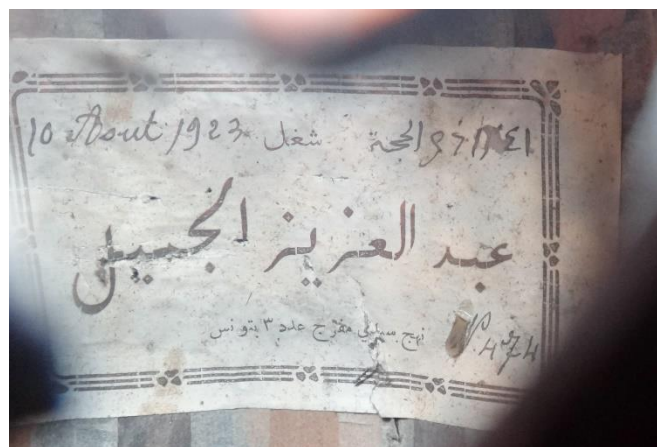 10 Aout 1923 شغل ذي الحجة ١٣٤١
عبد العزيز الجميل
نهج سيدي مفرج عدد ٣ بتونس
N. 474